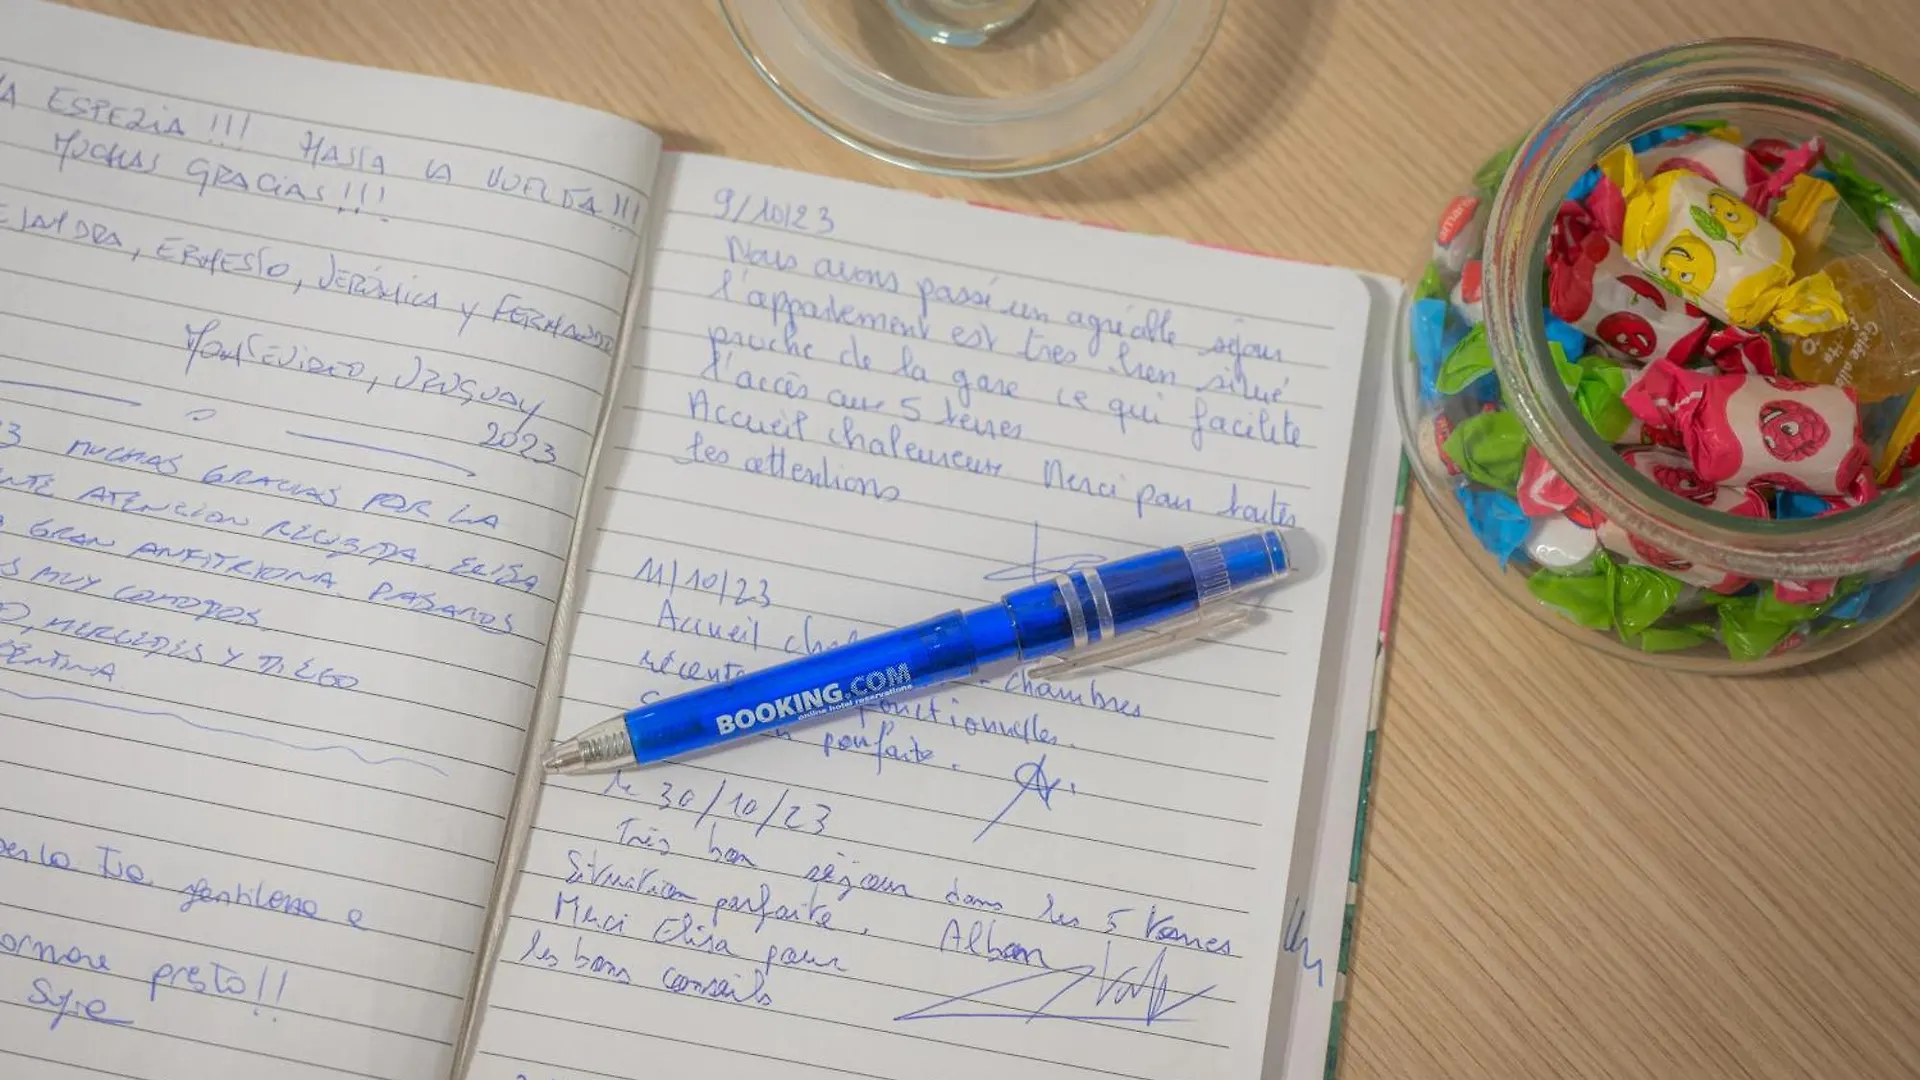 A ESPEZIA !!! HASTA LA VUELTA !!!
MUCHAS GRACIAS !!!
EJANDRA, ERNESTO, VERÓNICA y FERNANDO
MONTEVIDEO, URUGUAY
2023
3 MUCHAS GRACIAS POR LA
NTE ATENCION RECIBIDA. ELISA
GRAN ANFITRIONA. PASAMOS
S MUY COMODOS.
O, MERCEDES Y DIEGO
ENTINA
per la tua gentilezza e
ornare presto!!
9/10/23
Nous avons passé un agréable séjour
l'appartement est très bien situé
proche de la gare ce qui facilite
l'accès aux 5 terres
Accueil chaleureux Merci pour toutes
tes attentions
11/10/23
Accueil chal
récent chambres
fonctionnelles.
parfaite.
BOOKING.COM
online hotel reservations
le 30/10/23
Très bon séjour dans les 5 Terres
Situation parfaite. Alban
Merci Elisa pour
les bons conseils